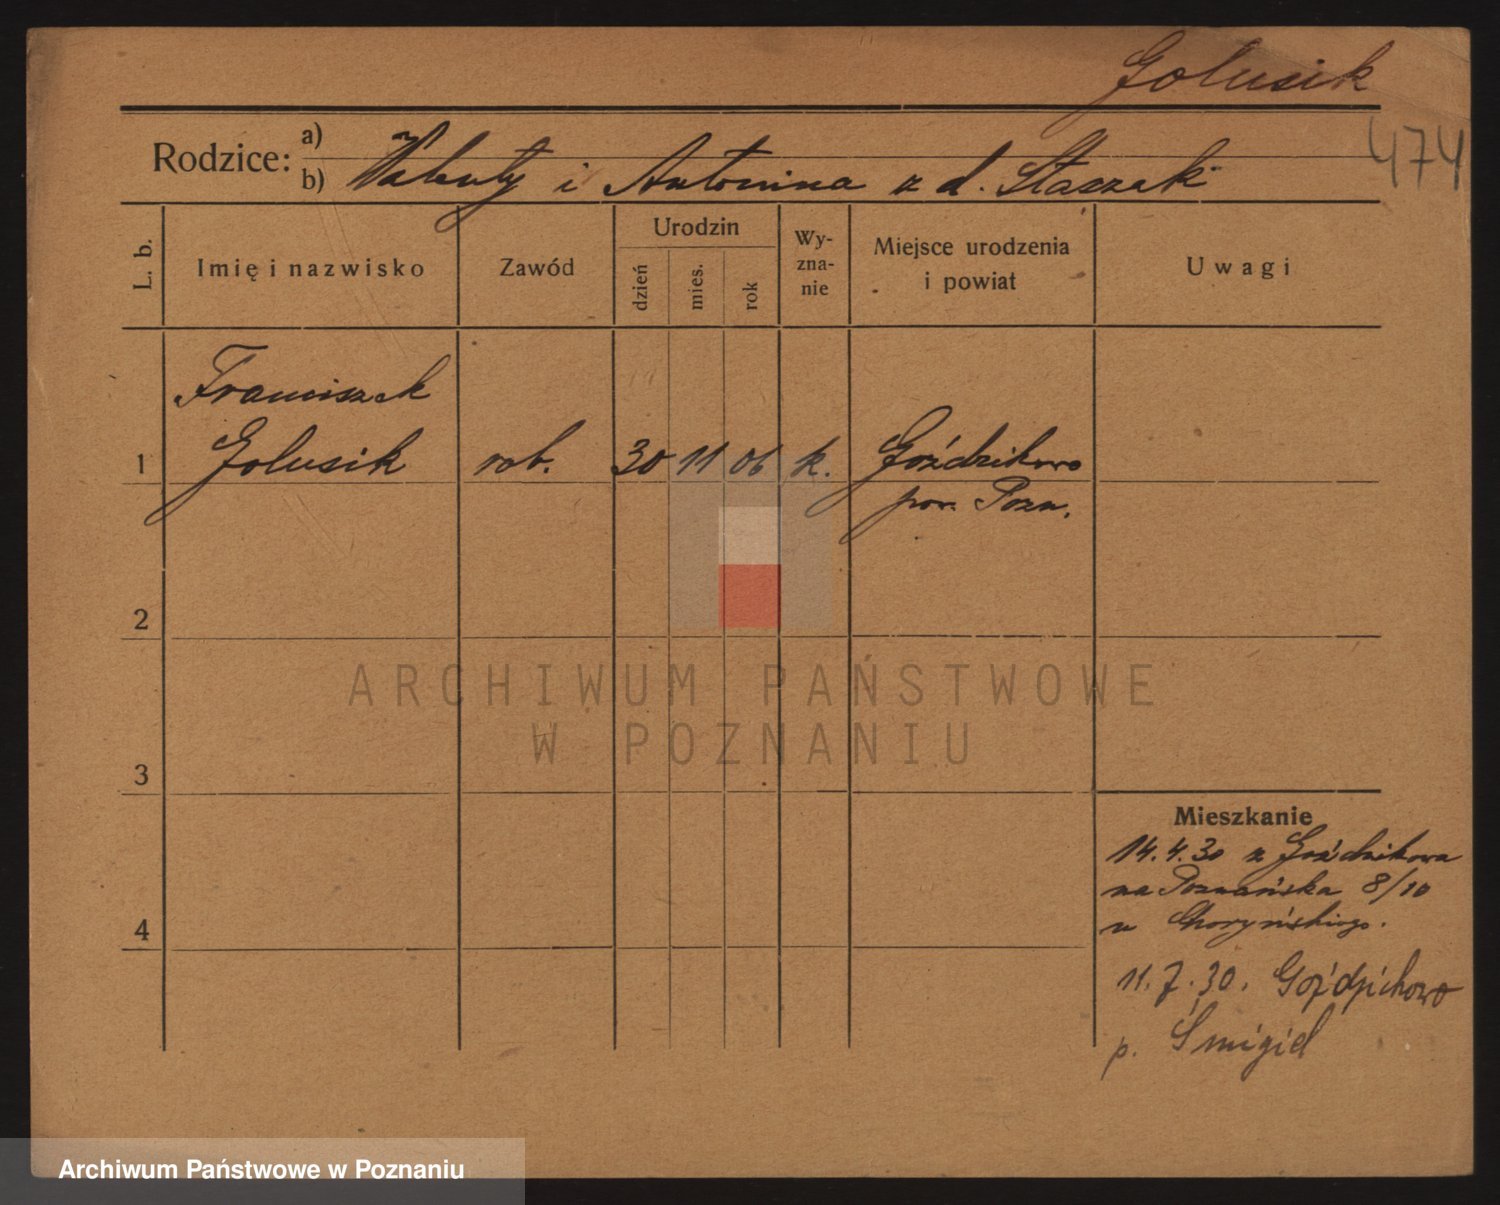 Golusik
474
Rodzice: a)
b) Walenty i Antonina z d. Staszak
L. b.
Imię i nazwisko
Zawód
Urodzin
dzień
mies.
rok
Wy-
zna-
nie
Miejsce urodzenia
i powiat
Uwagi
Franciszek
1 Golusik rob. 30 11 06 k. Goździkowo
pow. Pozn.
2
3
4
Mieszkanie
14.4.30 z Goździkowa
na Poznańska 8/10
u Choryńskiego.
11.7.30.
p. Śmigiel
ARCHIWUM PAŃSTWOWE
W POZNANIU
Archiwum Państwowe w Poznaniu